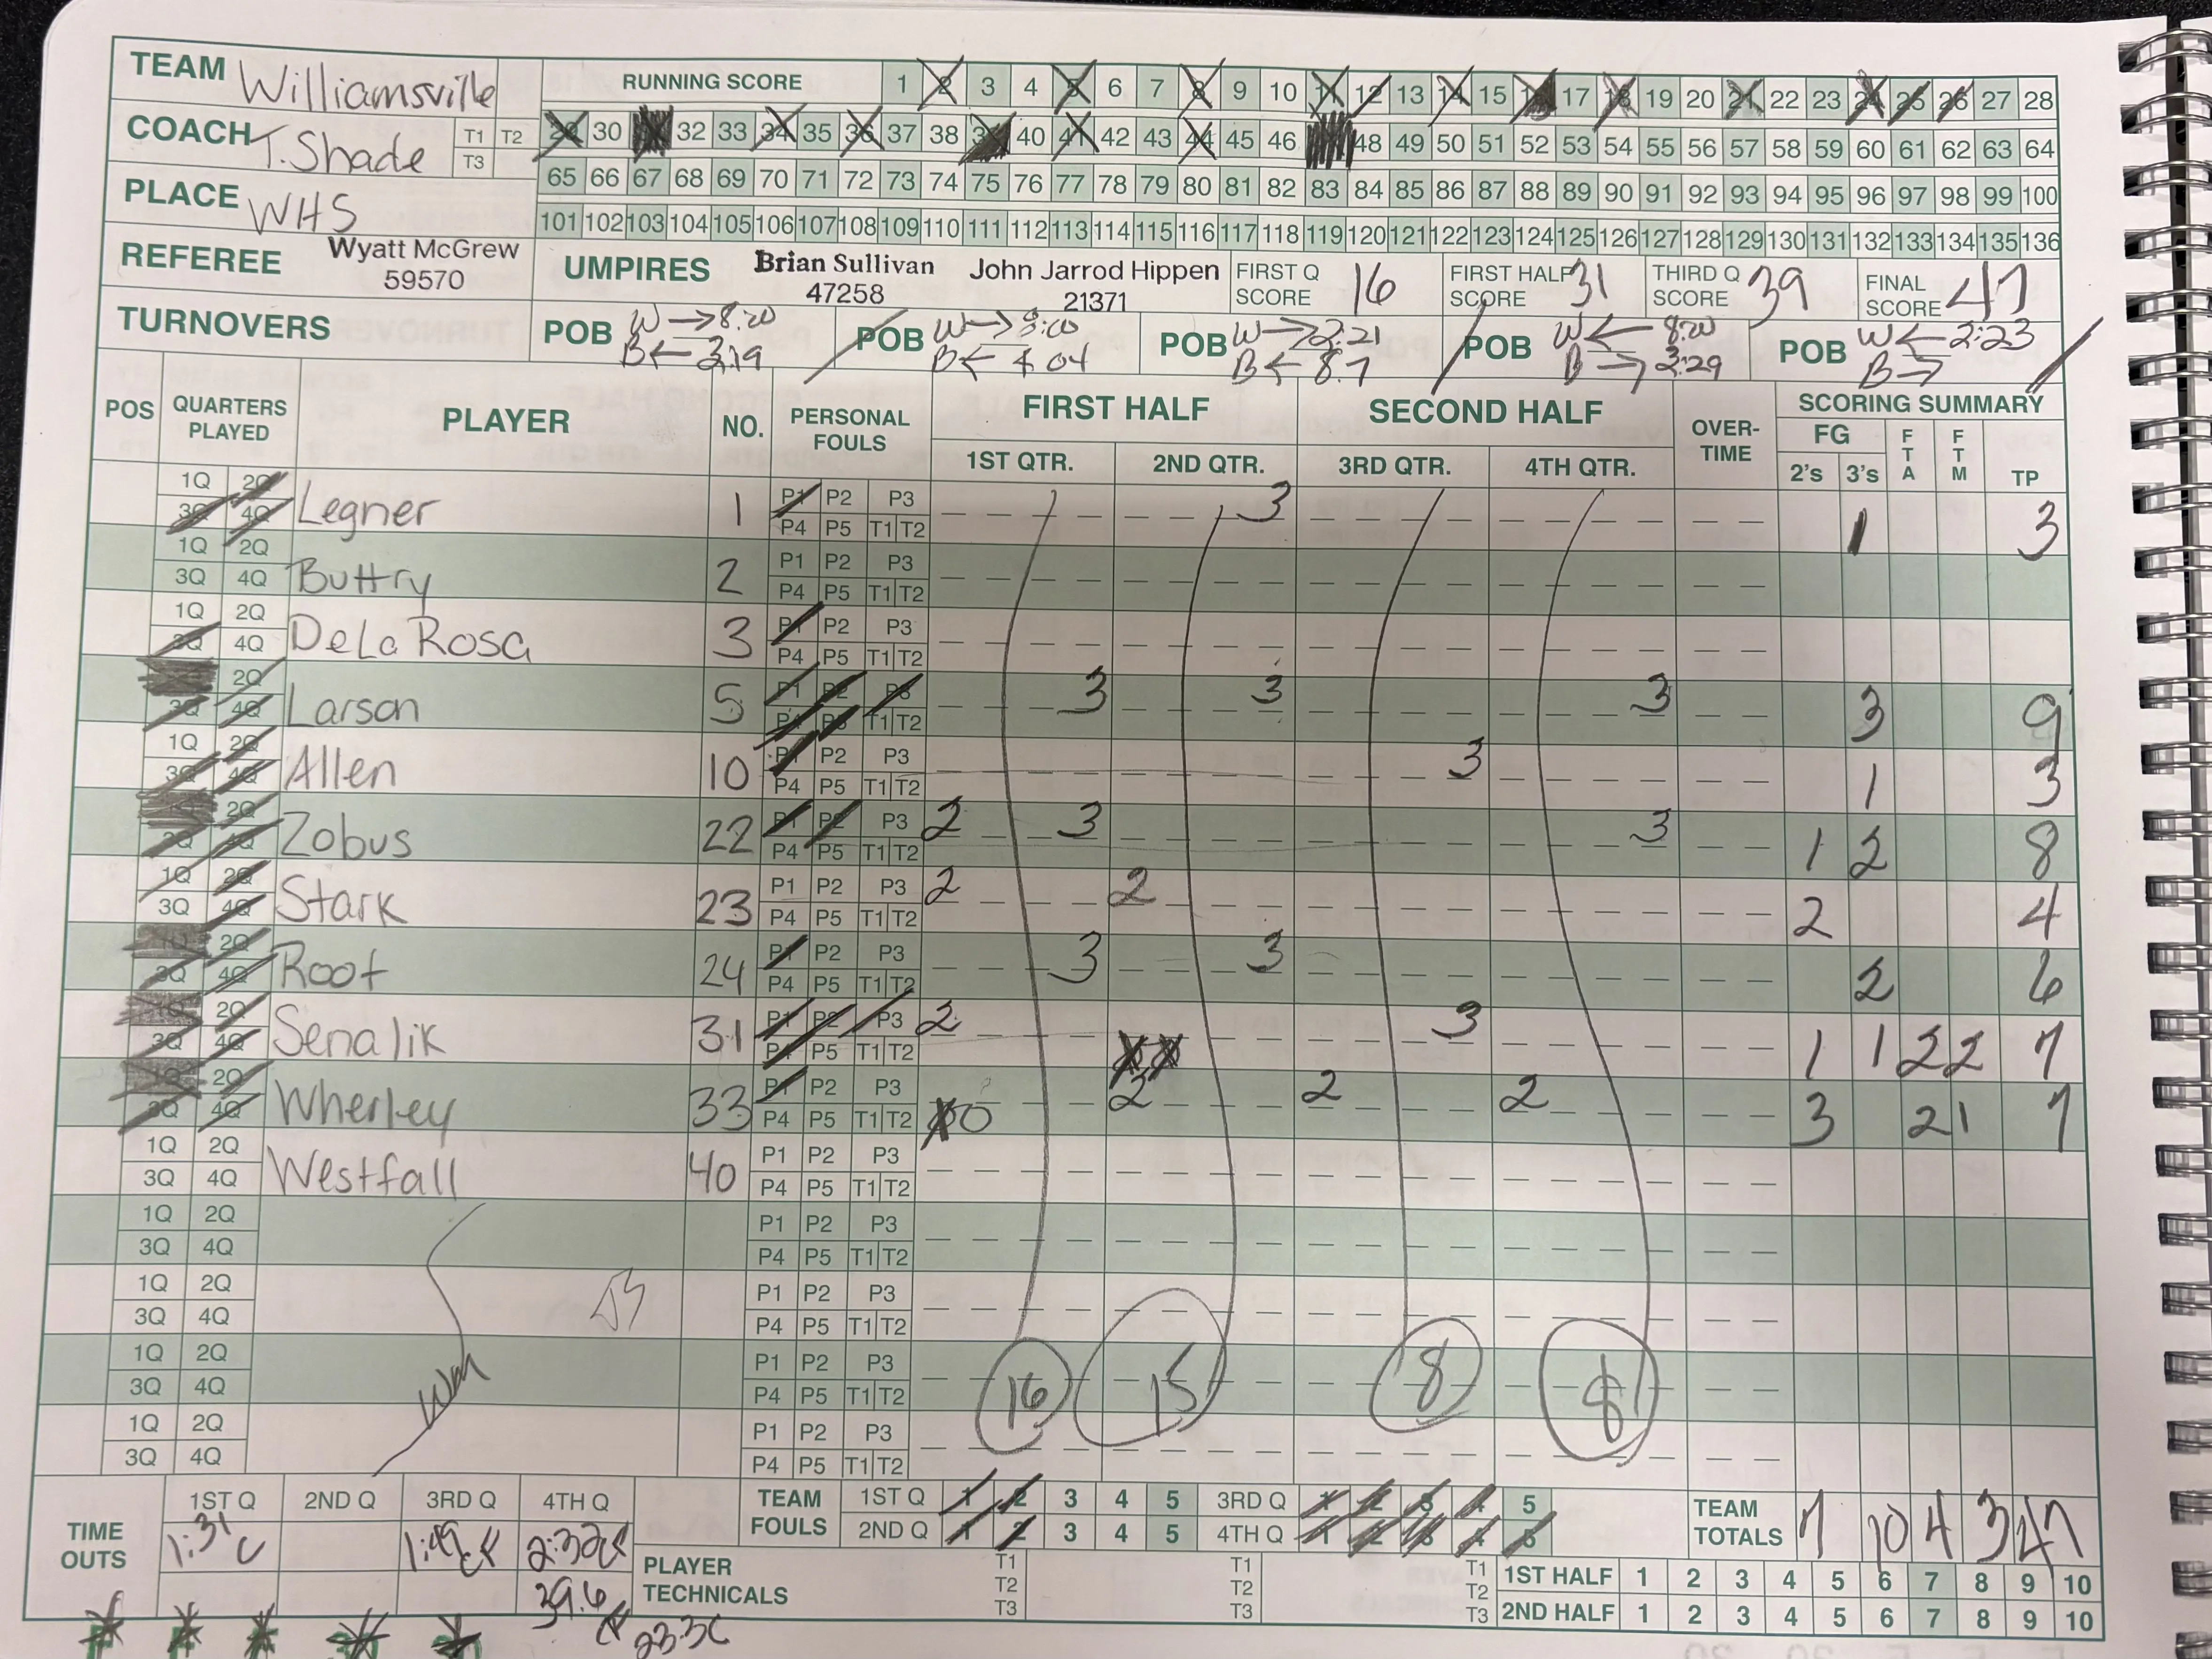 TEAM Williamsville
RUNNING SCORE 1 2 3 4 5 6 7 8 9 10 11 12 13 14 15 16 17 18 19 20 21 22 23 24 25 26 27 28
COACH T. Shade T1 T2 T3
29 30 31 32 33 34 35 36 37 38 39 40 41 42 43 44 45 46 48 49 50 51 52 53 54 55 56 57 58 59 60 61 62 63 64
PLACE WHS
65 66 67 68 69 70 71 72 73 74 75 76 77 78 79 80 81 82 83 84 85 86 87 88 89 90 91 92 93 94 95 96 97 98 99 100
101 102 103 104 105 106 107 108 109 110 111 112 113 114 115 116 117 118 119 120 121 122 123 124 125 126 127 128 129 130 131 132 133 134 135 136
REFEREE Wyatt McGrew 59570
UMPIRES Brian Sullivan 47258 John Jarrod Hippen 21371
FIRST Q SCORE 16 FIRST HALF SCORE 31 THIRD Q SCORE 39 FINAL SCORE 47
TURNOVERS
POB W → 8:00 B ← 3:19
POB W → B ← 4 04
POB W → 2:21 B ← 8.7
POB W ← 8:00 B → 3:29
POB W ← 2:23 B →
POS QUARTERS PLAYED PLAYER NO. PERSONAL FOULS FIRST HALF SECOND HALF OVER-TIME SCORING SUMMARY
1ST QTR. 2ND QTR. 3RD QTR. 4TH QTR. FG 2's 3's FTA FTM TP
1Q 2Q 3Q 4Q Legner 1 P1 P2 P3 P4 P5 T1 T2 3 1 3
1Q 2Q 3Q 4Q Buttry 2 P1 P2 P3 P4 P5 T1 T2
1Q 2Q 3Q 4Q DeLa Rosa 3 P1 P2 P3 P4 P5 T1 T2
2Q 3Q 4Q Larson 5 P1 P2 P3 P4 P5 T1 T2 3 3 3 3 9
1Q 2Q 3Q 4Q Allen 10 P1 P2 P3 P4 P5 T1 T2 3 1 3
2Q 3Q 4Q Zobus 22 P1 P2 P3 P4 P5 T1 T2 2 3 3 1 2 8
1Q 2Q 3Q 4Q Stark 23 P1 P2 P3 P4 P5 T1 T2 2 2 2 4
1Q 2Q 3Q 4Q Root 24 P1 P2 P3 P4 P5 T1 T2 3 3 2 6
2Q 3Q 4Q Senalik 31 P1 P2 P3 P4 P5 T1 T2 2 3 1 1 2 2 7
1Q 2Q 3Q 4Q Wherley 33 P1 P2 P3 P4 P5 T1 T2 0 2 2 2 3 2 1 7
1Q 2Q 3Q 4Q Westfall 40 P1 P2 P3 P4 P5 T1 T2
1Q 2Q 3Q 4Q P1 P2 P3 P4 P5 T1 T2
1Q 2Q 3Q 4Q P1 P2 P3 P4 P5 T1 T2
1Q 2Q 3Q 4Q P1 P2 P3 P4 P5 T1 T2
1Q 2Q 3Q 4Q P1 P2 P3 P4 P5 T1 T2
16 15 8 8
TIME OUTS 1ST Q 2ND Q 3RD Q 4TH Q
1:31 C 1:49 2:32
39.6
23.3C
TEAM FOULS 1ST Q 1 2 3 4 5 3RD Q 1 2 3 4 5
2ND Q 1 2 3 4 5 4TH Q 1 2 3 4 5
TEAM TOTALS 7 10 4 3 47
PLAYER TECHNICALS T1 T2 T3 T1 T2 T3 T1 T2 T3
1ST HALF 1 2 3 4 5 6 7 8 9 10
2ND HALF 1 2 3 4 5 6 7 8 9 10